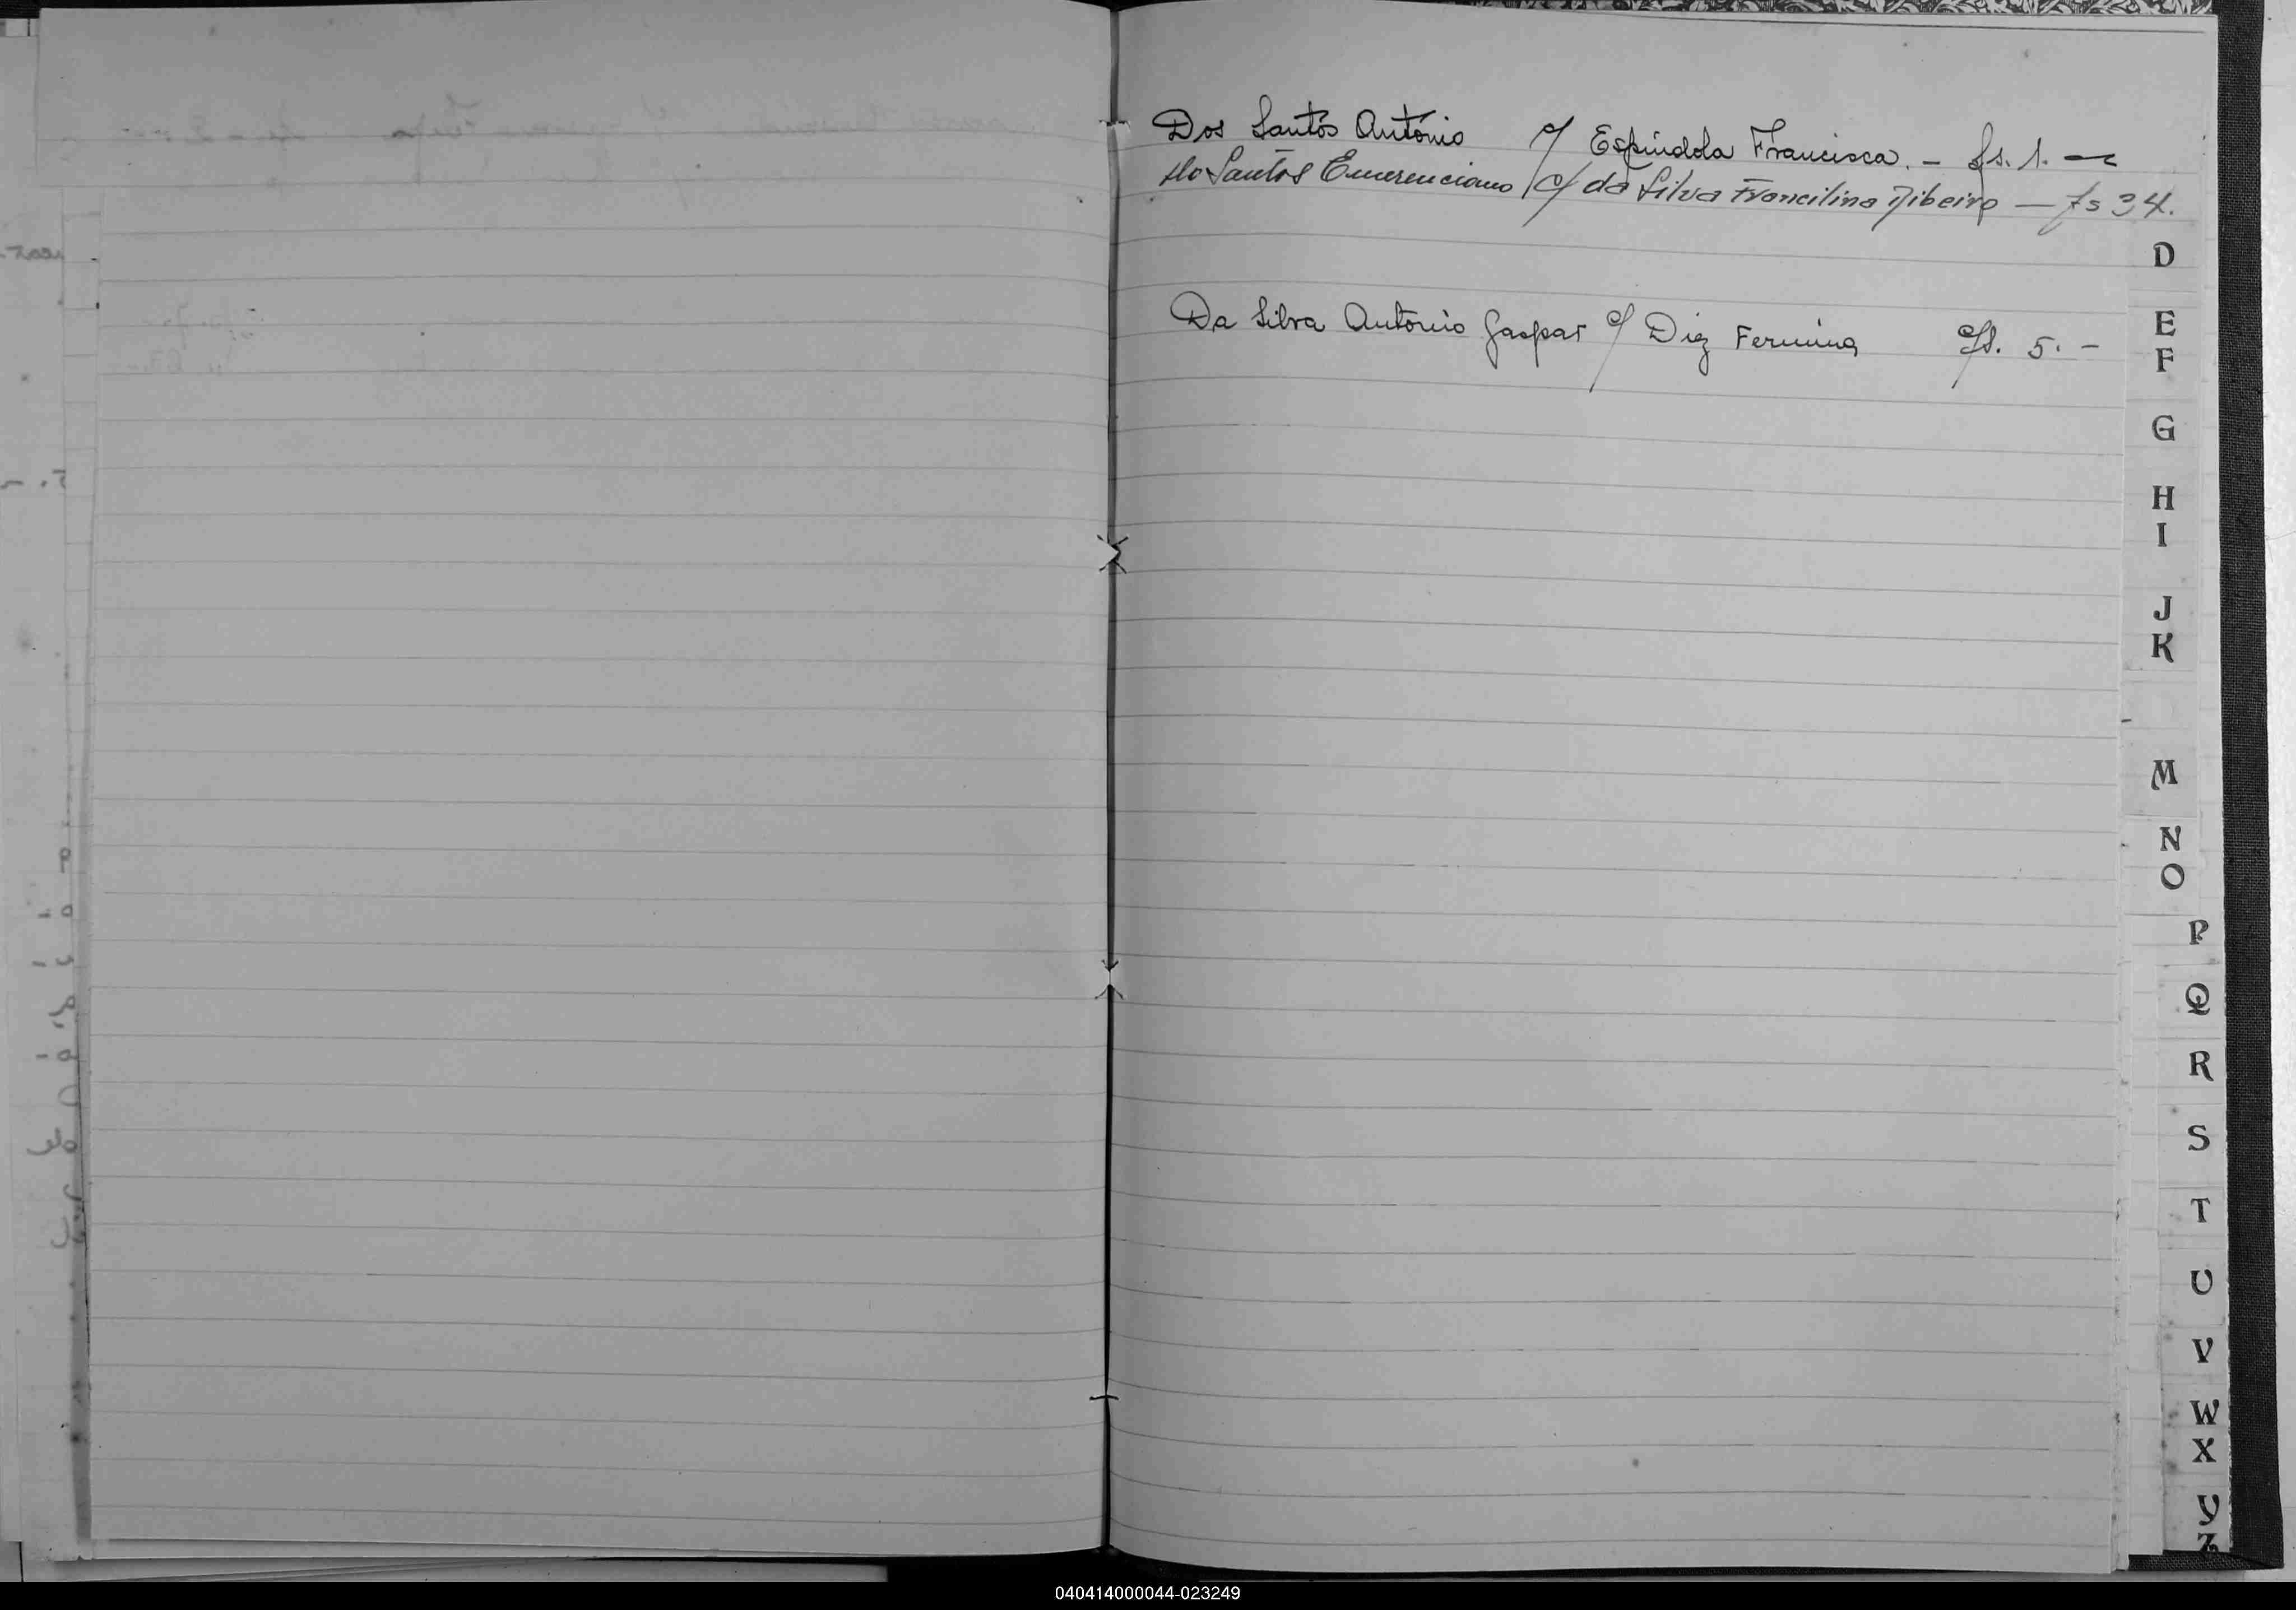 Dos Santos António c/ Espindola Francisca. - fs. 1. —
do Santos Emerenciano c/ da Silva Francilina Ribeiro — fs 34.
D
Da Silva António Gaspar c/ Diez Fermina fs. 5. -
E
F
G
H
I
J
K
M
N
O
P
Q
R
S
T
U
V
W
X
Y
Z
040414000044-023249